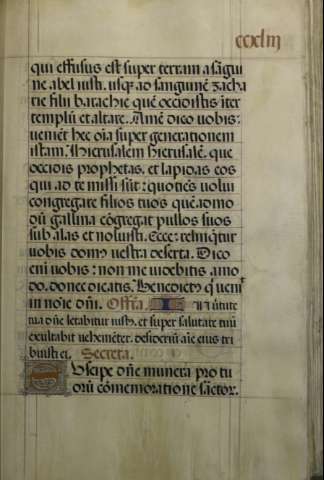 cclm
qui effusus est super terram a sãgui
ne abel iusti. usq̃ ad sanguinẽ zacha
rie filii barachie quẽ occidistis iter
templũ et altare. Amẽ dico uobis:
ueniẽt hec oĩa super generationem
istam. Hierusalem hierusalẽ. que
occidis prophetas. et lapidas eos
qui ad te missi sũt: quotiẽs uolui
congregare filios tuos quẽadmo
dũ gallina cõgregat pullos suos
sub alas et noluisti. Ecce: relinq̃tur
uobis domus uestra deserta. Dico
eni uobis: non me uidebitis amo
do. donec dicatis. Benedictus q̃ uenit
in noĩe dñi. Offer̃. In uirtute
tua dñe letabitur iustus. et super salutare tuũ
exultabit uehemẽter. desideriũ aĩe eius tri
buisti ei. Secreta.
Suscipe dñe munera pro tu
orũ cõmemoratione sãctor.